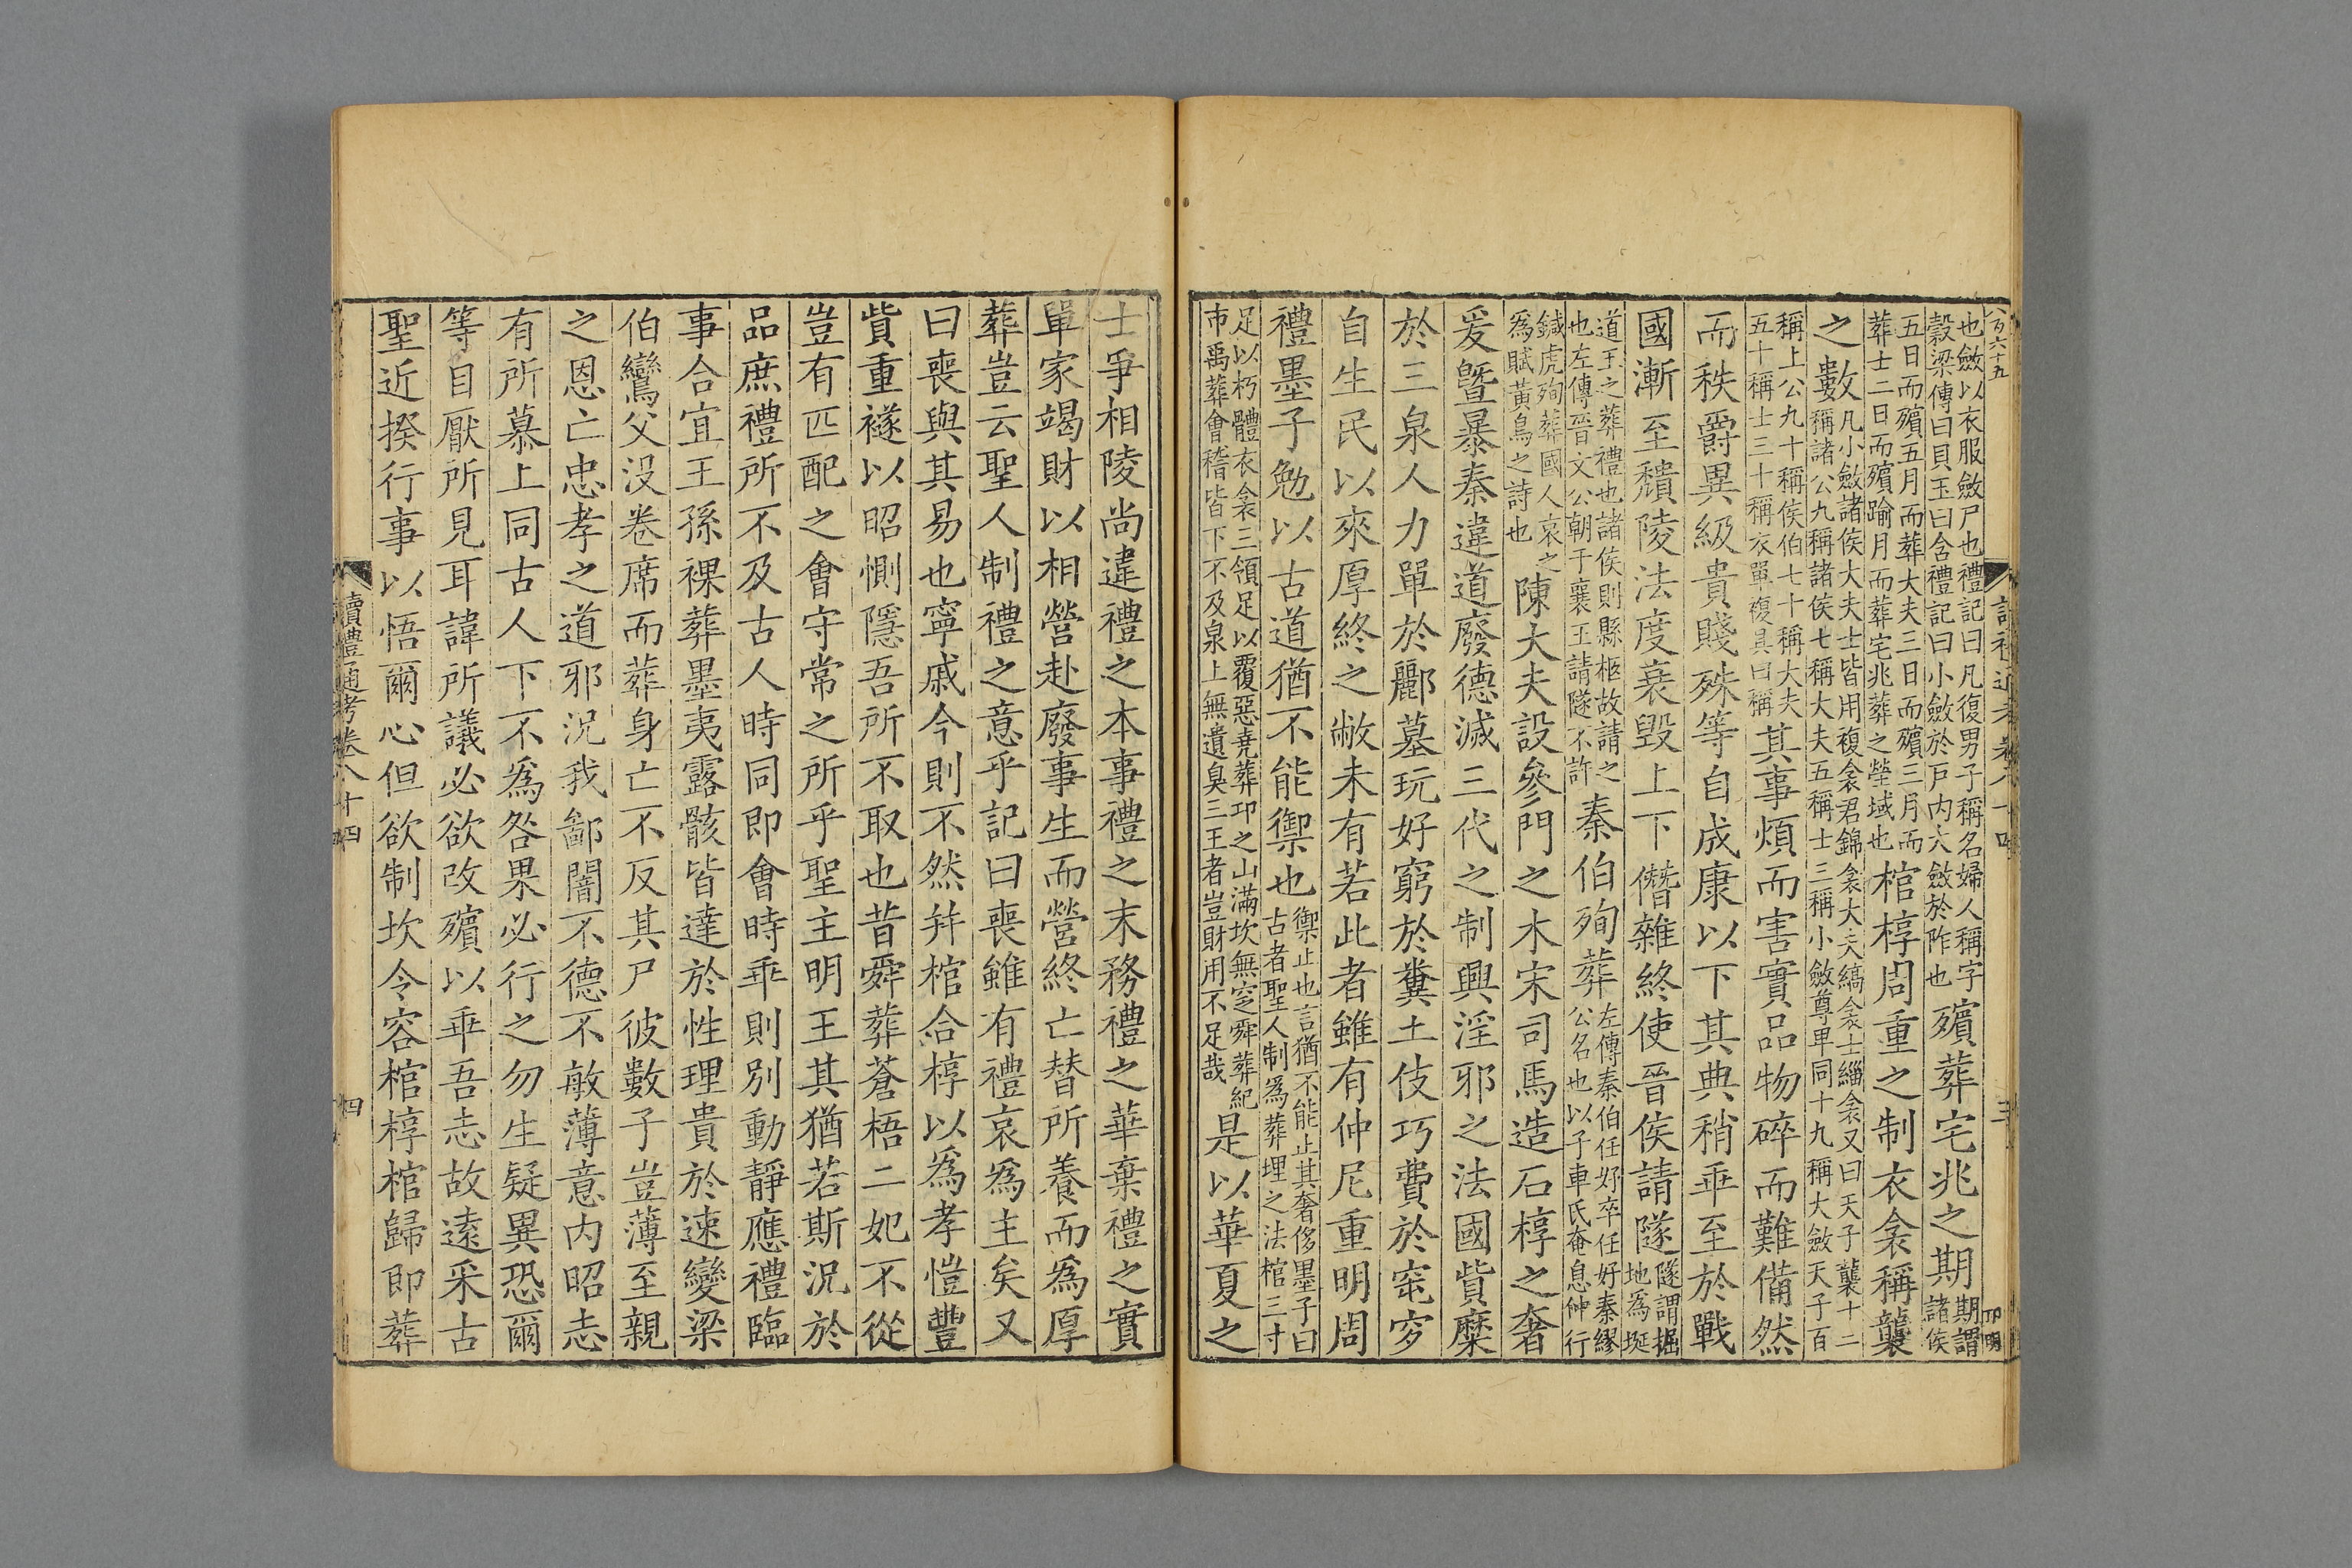 八百六十五
讀禮通考卷八十四
三
也斂以衣服斂尸也禮記曰凡復男子稱名婦人稱字
穀梁傳曰貝玉曰含禮記曰小斂於戶内大斂於阼也
殯葬宅兆之期
期謂
諸侯
五日而殯五月而葬大夫三日而殯三月而
葬士二日而殯踰月而葬宅兆葬之塋域也
棺椁周重之制衣衾稱襲
之數
凡小斂諸侯大夫士皆用複衾君錦衾大夫縞衾士緇衾又曰天子襲十二
稱諸公九稱諸侯七稱大夫五稱士三稱小斂尊卑同十九稱大斂天子百
稱上公九十稱侯伯七十稱大夫
五十稱士三十稱衣單複具曰稱
其事煩而害實品物碎而難備然
而秩爵異級貴賤殊等自成康以下其典稍乖至於戰
國漸至穨陵法度衰毀上下僭雜終使晉侯請隧
隧謂掘
地爲埏
道王之葬禮也諸侯則縣柩故請之
也左傳晉文公朝于襄王請隧不許
秦伯殉葬
左傳秦伯任好卒任好秦繆
公名也以子車氏奄息仲行
鍼虎殉葬國人哀之
爲賦黃鳥之詩也
陳大夫設參門之木宋司馬造石椁之奢
爰曁暴秦違道廢德滅三代之制興淫邪之法國貲糜
於三泉人力單於酈墓玩好窮於糞土伎巧費於窀穸
自生民以來厚終之敝未有若此者雖有仲尼重明周
禮墨子勉以古道猶不能禦也
禦止也言猶不能止其奢侈墨子曰
古者聖人制爲葬埋之法棺三寸
足以朽體衣衾三領足以覆惡堯葬卭之山滿坎無窆舜葬紀
市禹葬會稽皆下不及泉上無遺臭三王者豈財用不足哉
是以華夏之
士爭相陵尚違禮之本事禮之末務禮之華棄禮之實
單家竭財以相營赴廢事生而營終亡替所養而爲厚
葬豈云聖人制禮之意乎記曰喪雖有禮哀爲主矣又
曰喪與其易也寧戚今則不然并棺合椁以爲孝愷豐
貲重襚以昭惻隱吾所不取也昔舜葬蒼梧二妃不從
豈有匹配之會守常之所乎聖主明王其猶若斯況於
品庶禮所不及古人時同即會時乖則別動靜應禮臨
事合宜王孫裸葬墨夷露骸皆達於性理貴於速變梁
伯鸞父没卷席而葬身亡不反其尸彼數子豈薄至親
之恩亡忠孝之道邪況我鄙闇不德不敏薄意内昭志
有所慕上同古人下不爲咎果必行之勿生疑異恐爾
等目厭所見耳諱所議必欲改殯以乖吾志故遠采古
聖近揆行事以悟爾心但欲制坎令容棺椁棺歸即葬
讀禮通考卷八十四
四